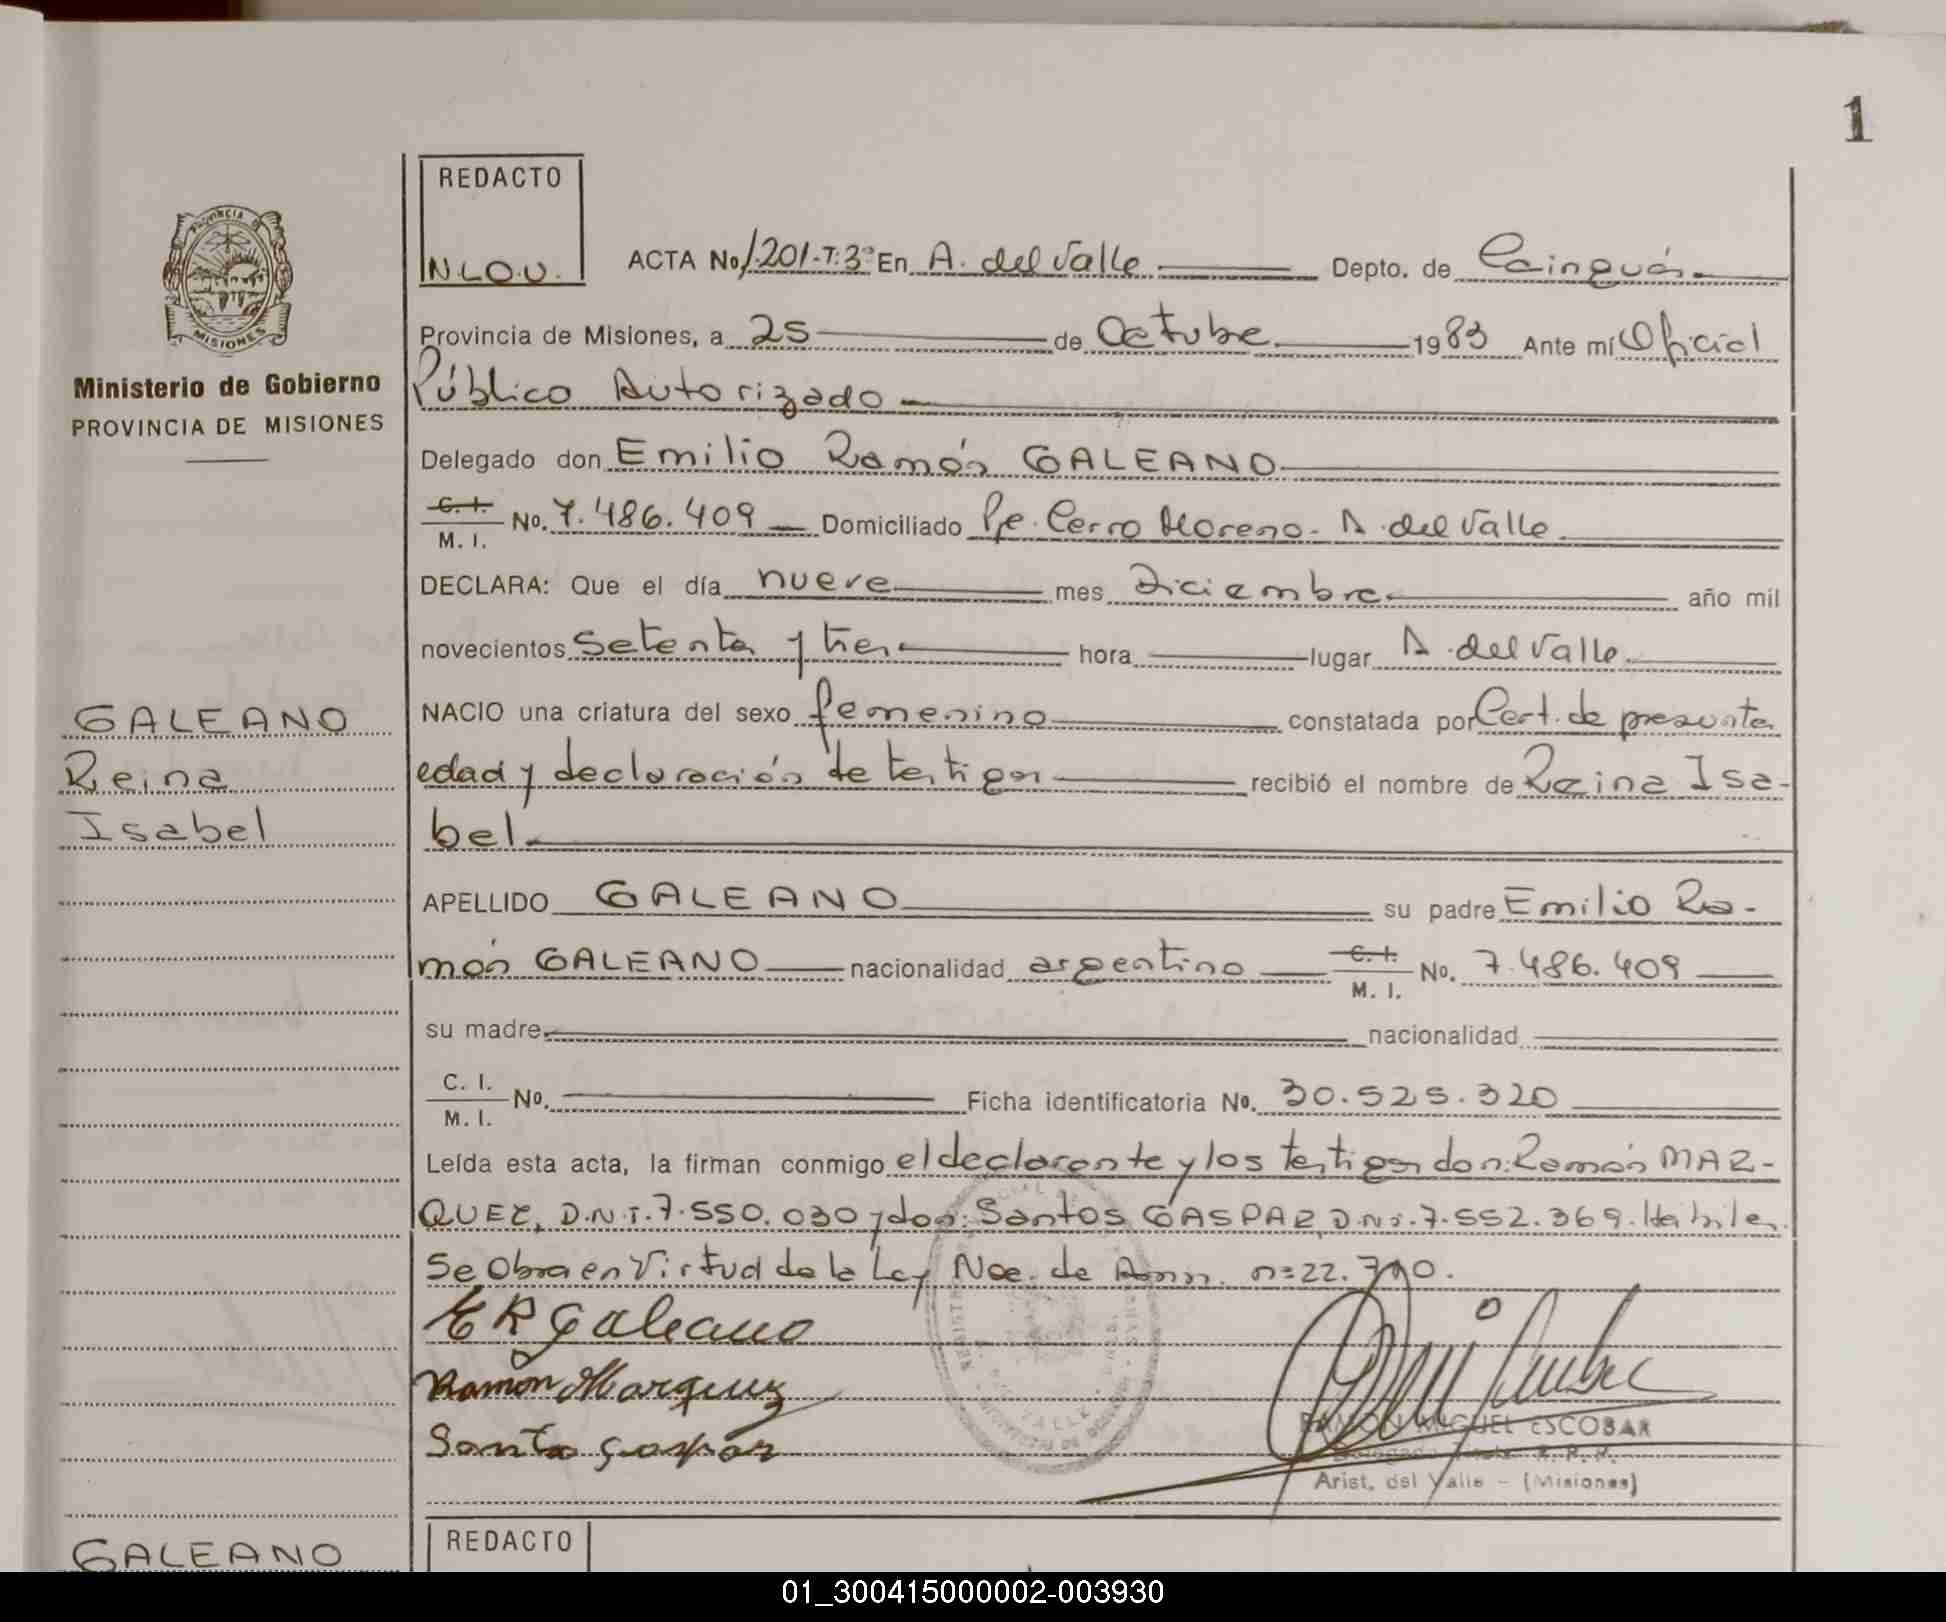 1
REDACTO
N.L.O.U.
PROVINCIA DE
MISIONES
Ministerio de Gobierno
PROVINCIA DE MISIONES
ACTA No 1.201-T:3º En A. del Valle Depto. de Cainguás
Provincia de Misiones, a 25 de Octubre 1983 Ante mí Oficial
Público Autorizado
Delegado don Emilio Ramón GALEANO
C. I.
M. I. No. 7.486.409 Domiciliado Pje. Cerro Moreno - A. del Valle
DECLARA: Que el día nueve mes Diciembre año mil
novecientos Setenta y tres hora lugar A. del Valle
NACIO una criatura del sexo femenino constatada por Cert. de presunta
edad y declaración de testigos recibió el nombre de Reina Isa-
bel
GALEANO
Reina
Isabel
APELLIDO GALEANO su padre Emilio Ra-
món GALEANO nacionalidad argentino C. I.
M. I. No. 7.486.409
su madre nacionalidad
C. I.
M. I. No. Ficha identificatoria No. 30.525.320
Leída esta acta, la firman conmigo el declarante y los testigos don: Ramón MAR-
QUEZ, D.N.I. 7.550.030 y don: Santos GASPAR, D.N.I. 7.552.369. Hábiles.
Se Obra en Virtud de la Ley Nac. de Amn. nº 22.
E R Galeano
Ramon Marquez
Santo Gaspar
RAMON MIGUEL ESCOBAR
Arist. del Valle - (Misiones)
REDACTO
GALEANO
01_300415000002-003930